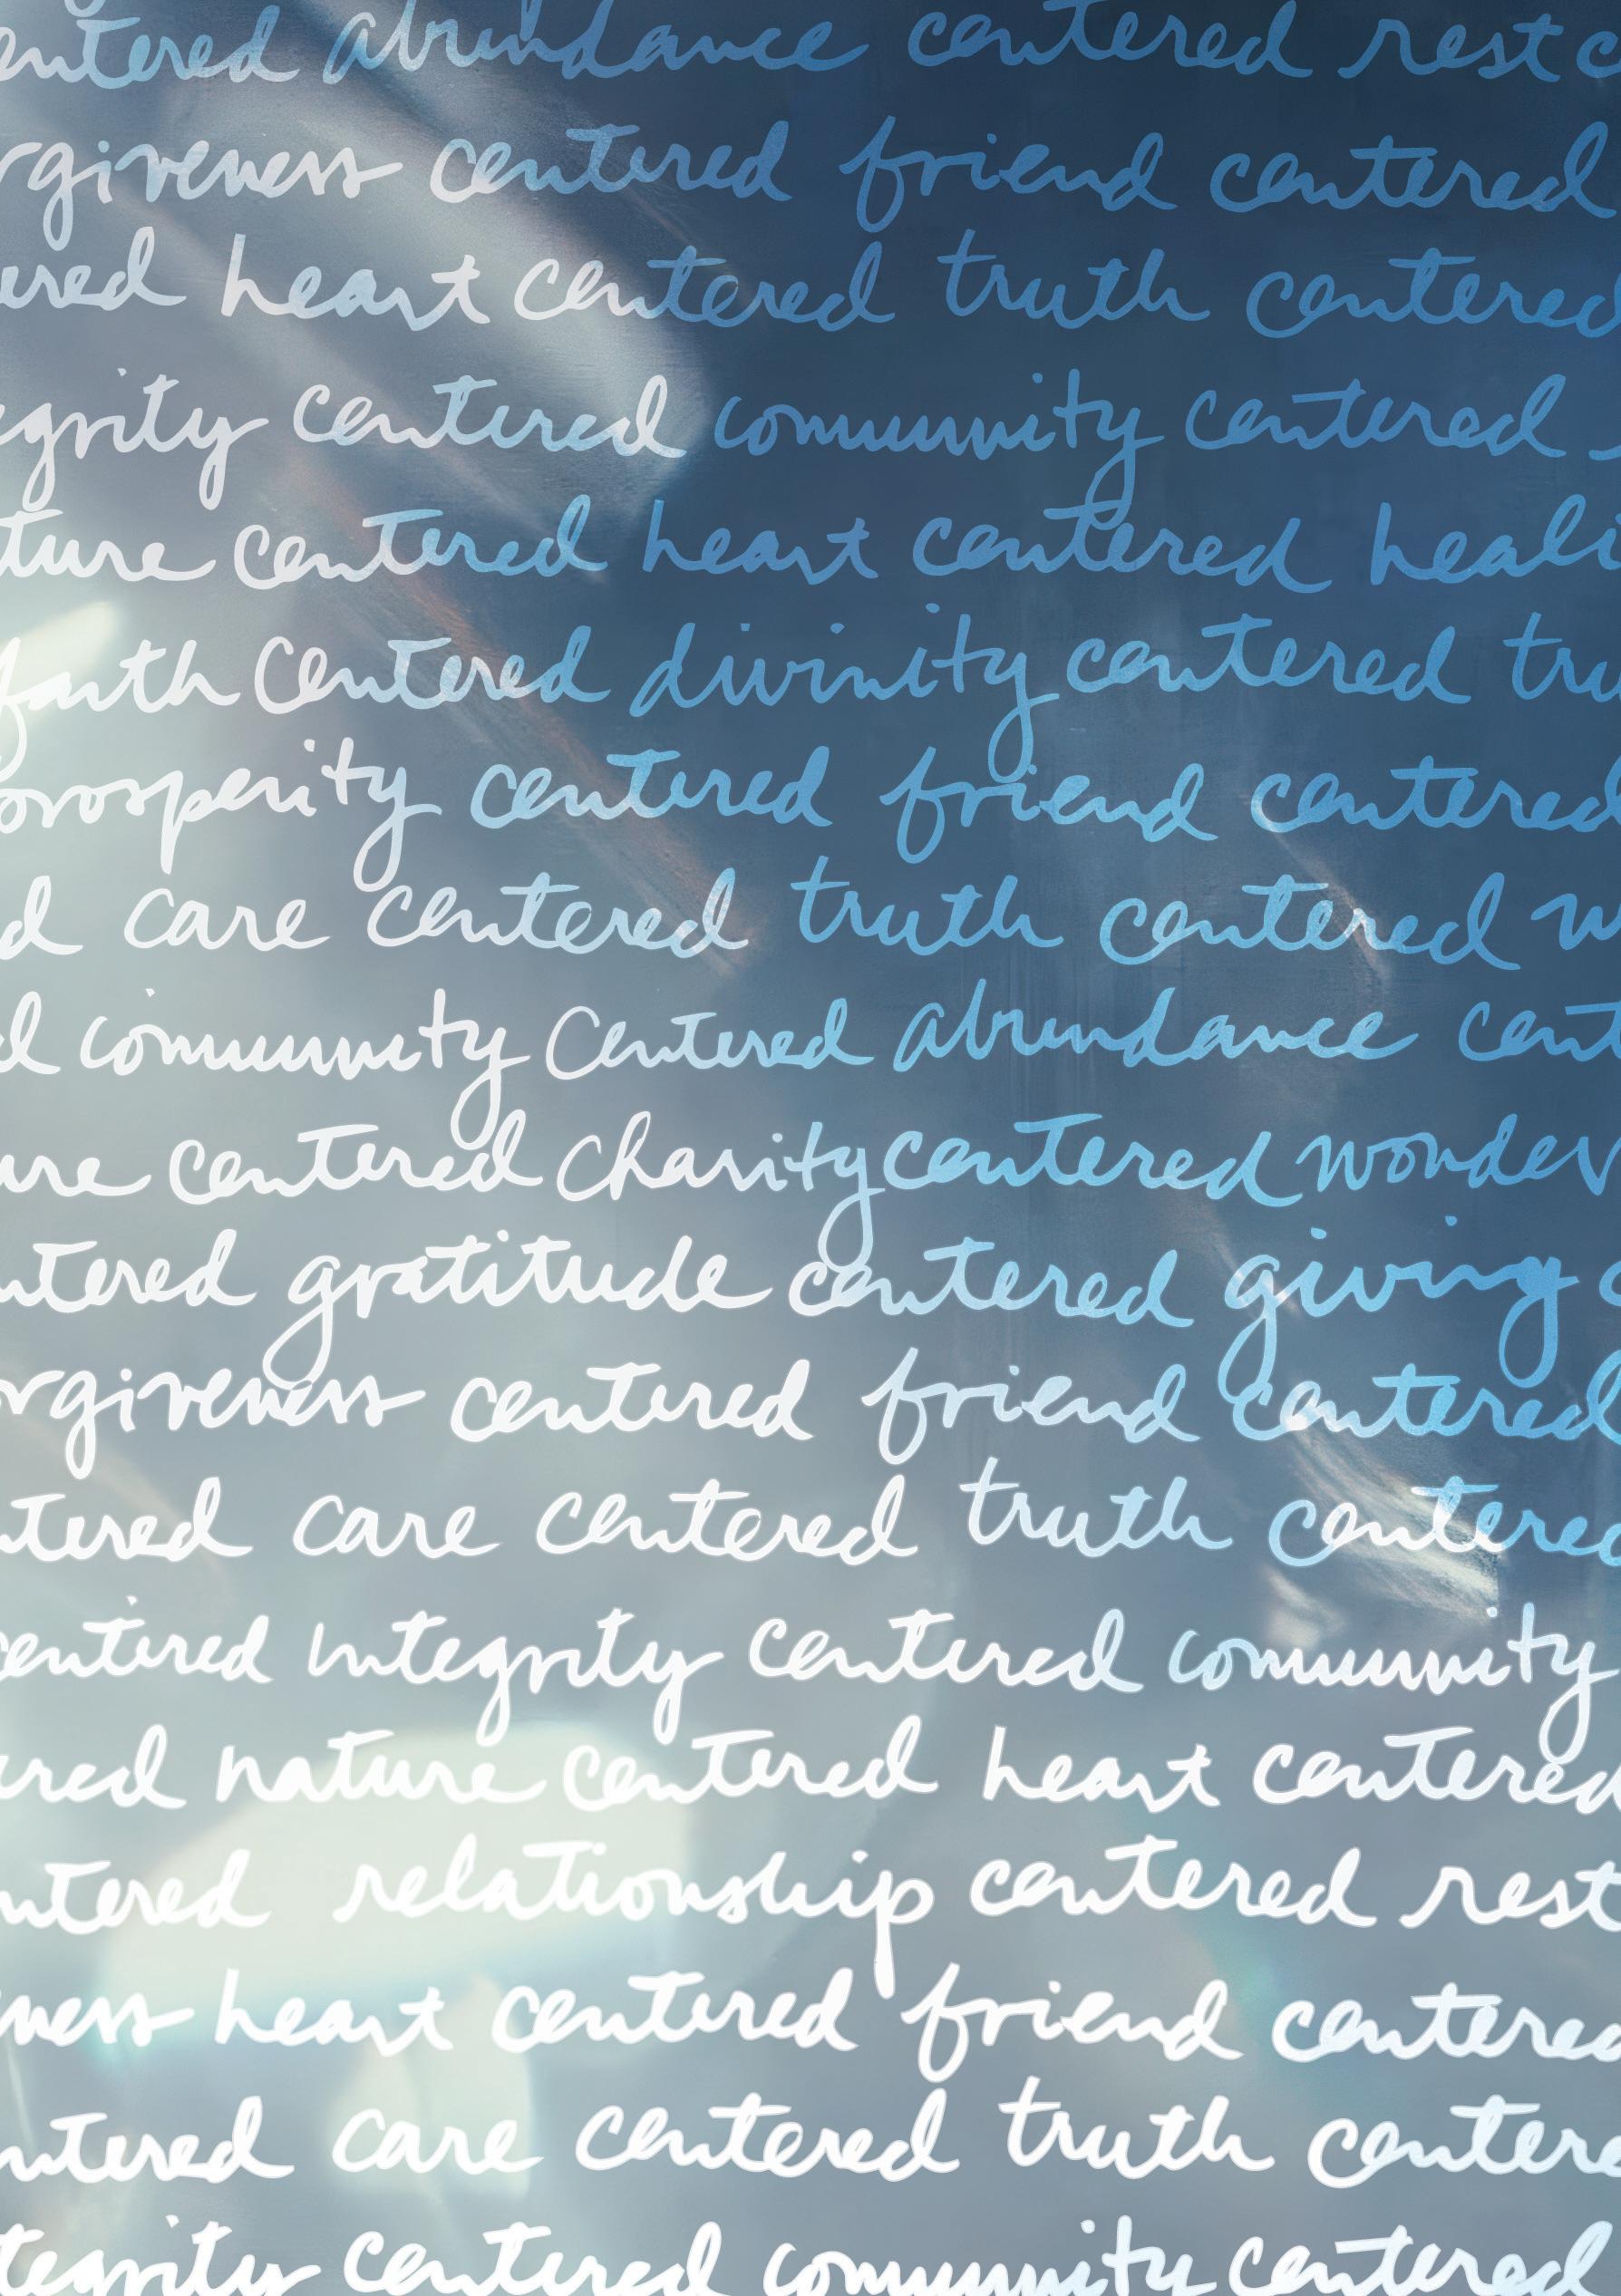 entered abundance centered rest c
rgiveness centered friend centered
ered heart centered truth centered
egrity centered community centered
ture centered heart centered heali
faith centered divinity centered tru
prosperity centered friend centered
d care centered truth centered w
d community centered abundance cent
ure centered charity centered wonder
ntered gratitude centered giving c
orgiveness centered friend centered
ntered care centered truth centered
centered integrity centered community
ered nature centered heart centered
ntered relationship centered rest
eness heart centered friend centered
ntered care centered truth centere
tegrity centered community centered